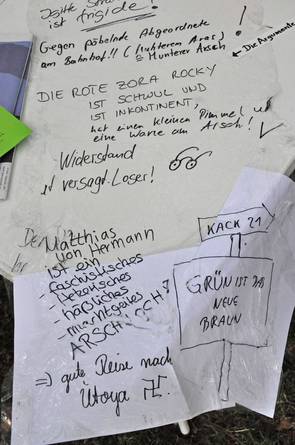 ist
Gegen pöbelnde Abgeordnete
am Bahnhof!!
Munterer Arsch
Die Argumente
DIE ROTE ZORA ROCKY
IST SCHWUL UND
IST INKONTINENT,
hat einen kleinen Pimmel u
eine Warze am Arsch!
Widerstand
ist versagt. Loser!
Matthias
von Hermann
ist ein
- faschistisches
- häßliches
ARSCHLOCH
=> gute Reise nach
Utoya 卐!
KACK 21
GRÜN IST DAS
NEUE
BRAUN